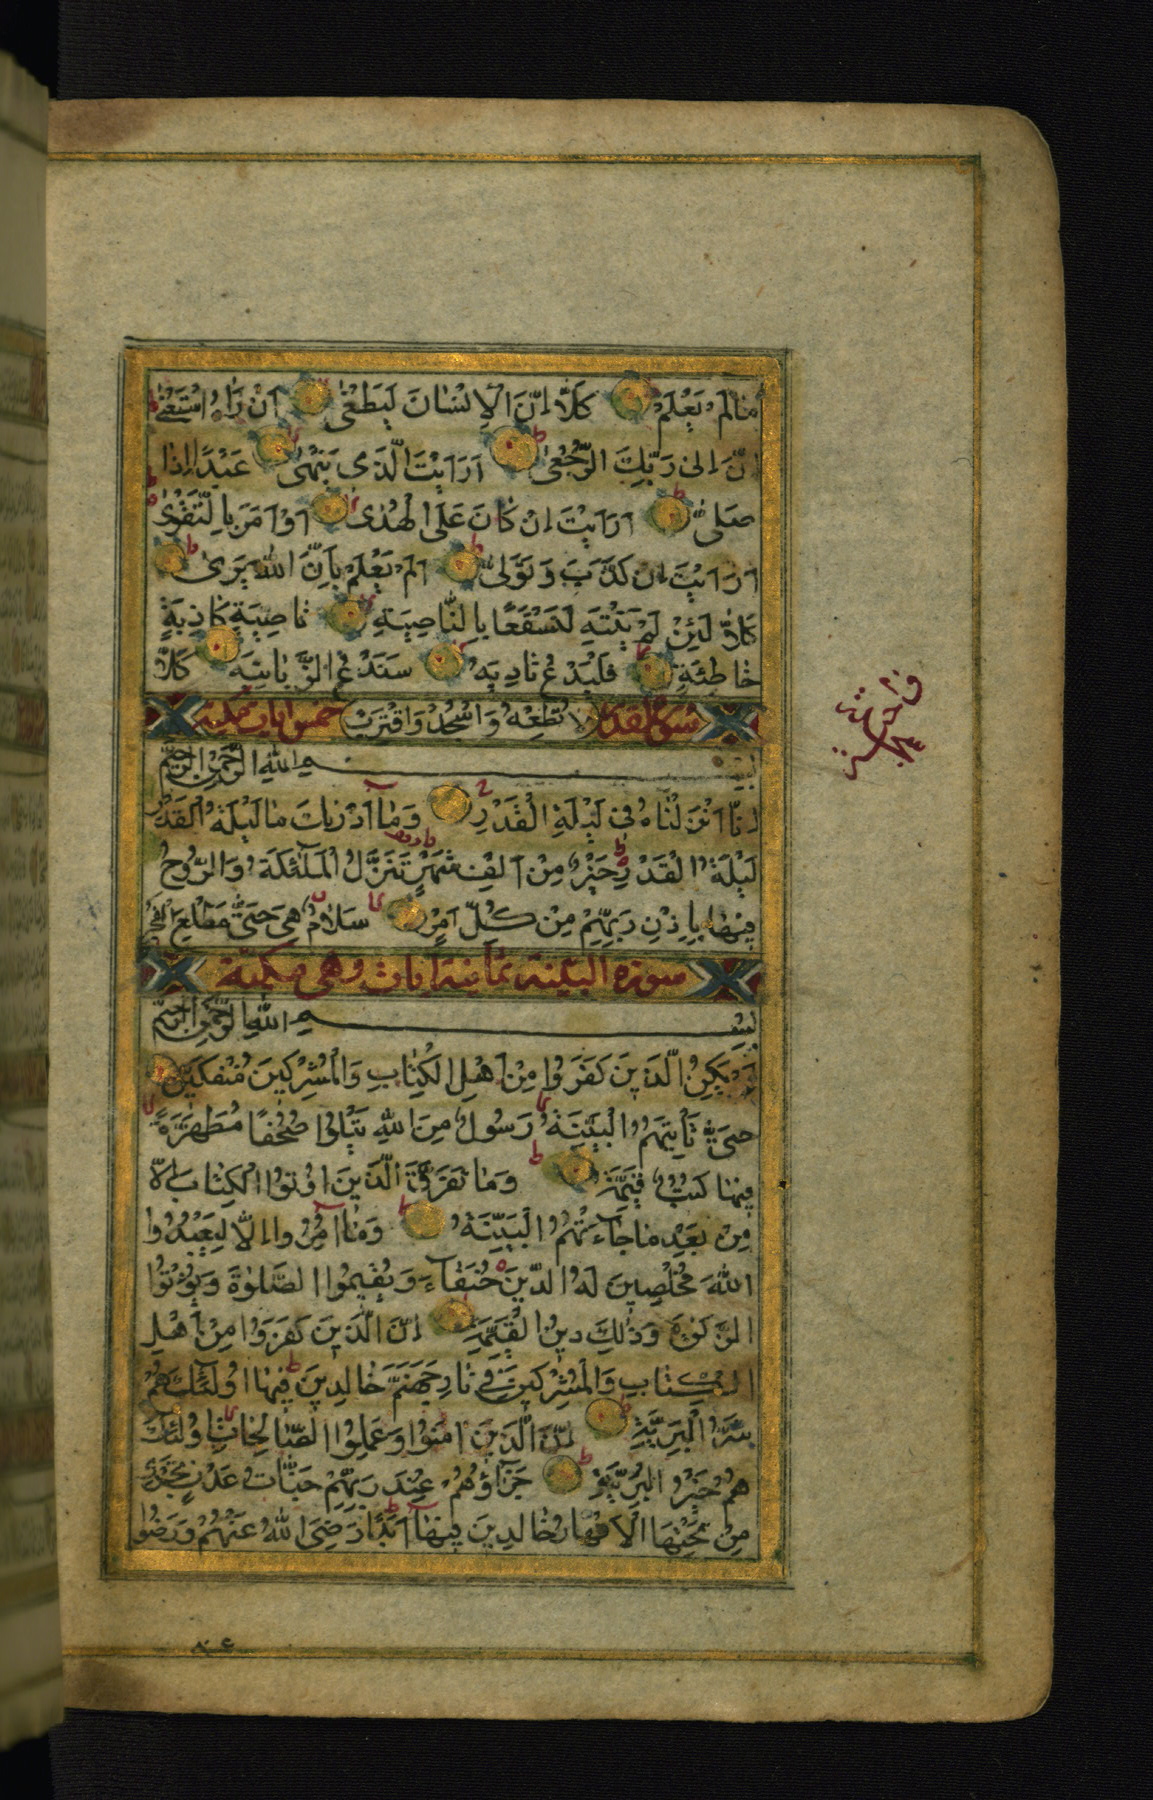 مَا لَمْ يَعْلَمْ كَلَّا إِنَّ الْإِنْسَانَ لَيَطْغٰى اَنْ رَاٰهُ اسْتَغْنٰى
اِنَّ اِلٰى رَبِّكَ الرُّجْعٰى اَرَاَيْتَ الَّذِى يَنْهٰى عَبْدًا اِذَا
صَلّٰى اَرَاَيْتَ اِنْ كَانَ عَلَى الْهُدٰى اَوْ اَمَرَ بِالتَّقْوٰى
اَرَاَيْتَ اِنْ كَذَّبَ وَتَوَلّٰى اَلَمْ يَعْلَمْ بِاَنَّ اللّٰهَ يَرٰى
كَلَّا لَئِنْ لَمْ يَنْتَهِ لَنَسْفَعًا بِالنَّاصِيَةِ نَاصِيَةٍ كَاذِبَةٍ
خَاطِئَةٍ فَلْيَدْعُ نَادِيَهُ سَنَدْعُ الزَّبَانِيَةَ كَلَّا
سورة القدر لَا تُطِعْهُ وَاسْجُدْ وَاقْتَرِبْ خمس ايات مكية
بسم اللّٰهِ الرَّحْمٰنِ الرَّحِيمِ
اِنَّا اَنْزَلْنَاهُ فِى لَيْلَةِ الْقَدْرِ وَمَا اَدْرٰيكَ مَا لَيْلَةُ الْقَدْرِ
لَيْلَةُ الْقَدْرِ خَيْرٌ مِنْ اَلْفِ شَهْرٍ تَنَزَّلُ الْمَلٰٓئِكَةُ وَالرُّوحُ
فِيهَا بِاِذْنِ رَبِّهِمْ مِنْ كُلِّ اَمْرٍ سَلَامٌ هِىَ حَتّٰى مَطْلَعِ الْفَجْرِ
سورة البينة ثمانية ايات وهى مكية
بسم اللّٰهِ الرَّحْمٰنِ الرَّحِيمِ
لَمْ يَكُنِ الَّذِينَ كَفَرُوا مِنْ اَهْلِ الْكِتَابِ وَالْمُشْرِكِينَ مُنْفَكِّينَ
حَتّٰى تَاْتِيَهُمُ الْبَيِّنَةُ رَسُولٌ مِنَ اللّٰهِ يَتْلُوا صُحُفًا مُطَهَّرَةً
فِيهَا كُتُبٌ قَيِّمَةٌ وَمَا تَفَرَّقَ الَّذِينَ اُوتُوا الْكِتَابَ اِلَّا
مِنْ بَعْدِ مَا جَآءَتْهُمُ الْبَيِّنَةُ وَمَا اُمِرُوا اِلَّا لِيَعْبُدُوا
اللّٰهَ مُخْلِصِينَ لَهُ الدِّينَ حُنَفَآءَ وَيُقِيمُوا الصَّلٰوةَ وَيُؤْتُوا
الزَّكٰوةَ وَذٰلِكَ دِينُ الْقَيِّمَةِ اِنَّ الَّذِينَ كَفَرُوا مِنْ اَهْلِ
الْكِتَابِ وَالْمُشْرِكِينَ فِى نَارِ جَهَنَّمَ خَالِدِينَ فِيهَا اُولٰٓئِكَ هُمْ
شَرُّ الْبَرِيَّةِ اِنَّ الَّذِينَ اٰمَنُوا وَعَمِلُوا الصَّالِحَاتِ اُولٰئِكَ
هُمْ خَيْرُ الْبَرِيَّةِ جَزَآؤُهُمْ عِنْدَ رَبِّهِمْ جَنَّاتُ عَدْنٍ تَجْرِى
مِنْ تَحْتِهَا الْاَنْهَارُ خَالِدِينَ فِيهَا اَبَدًا رَضِىَ اللّٰهُ عَنْهُمْ وَرَضُوا